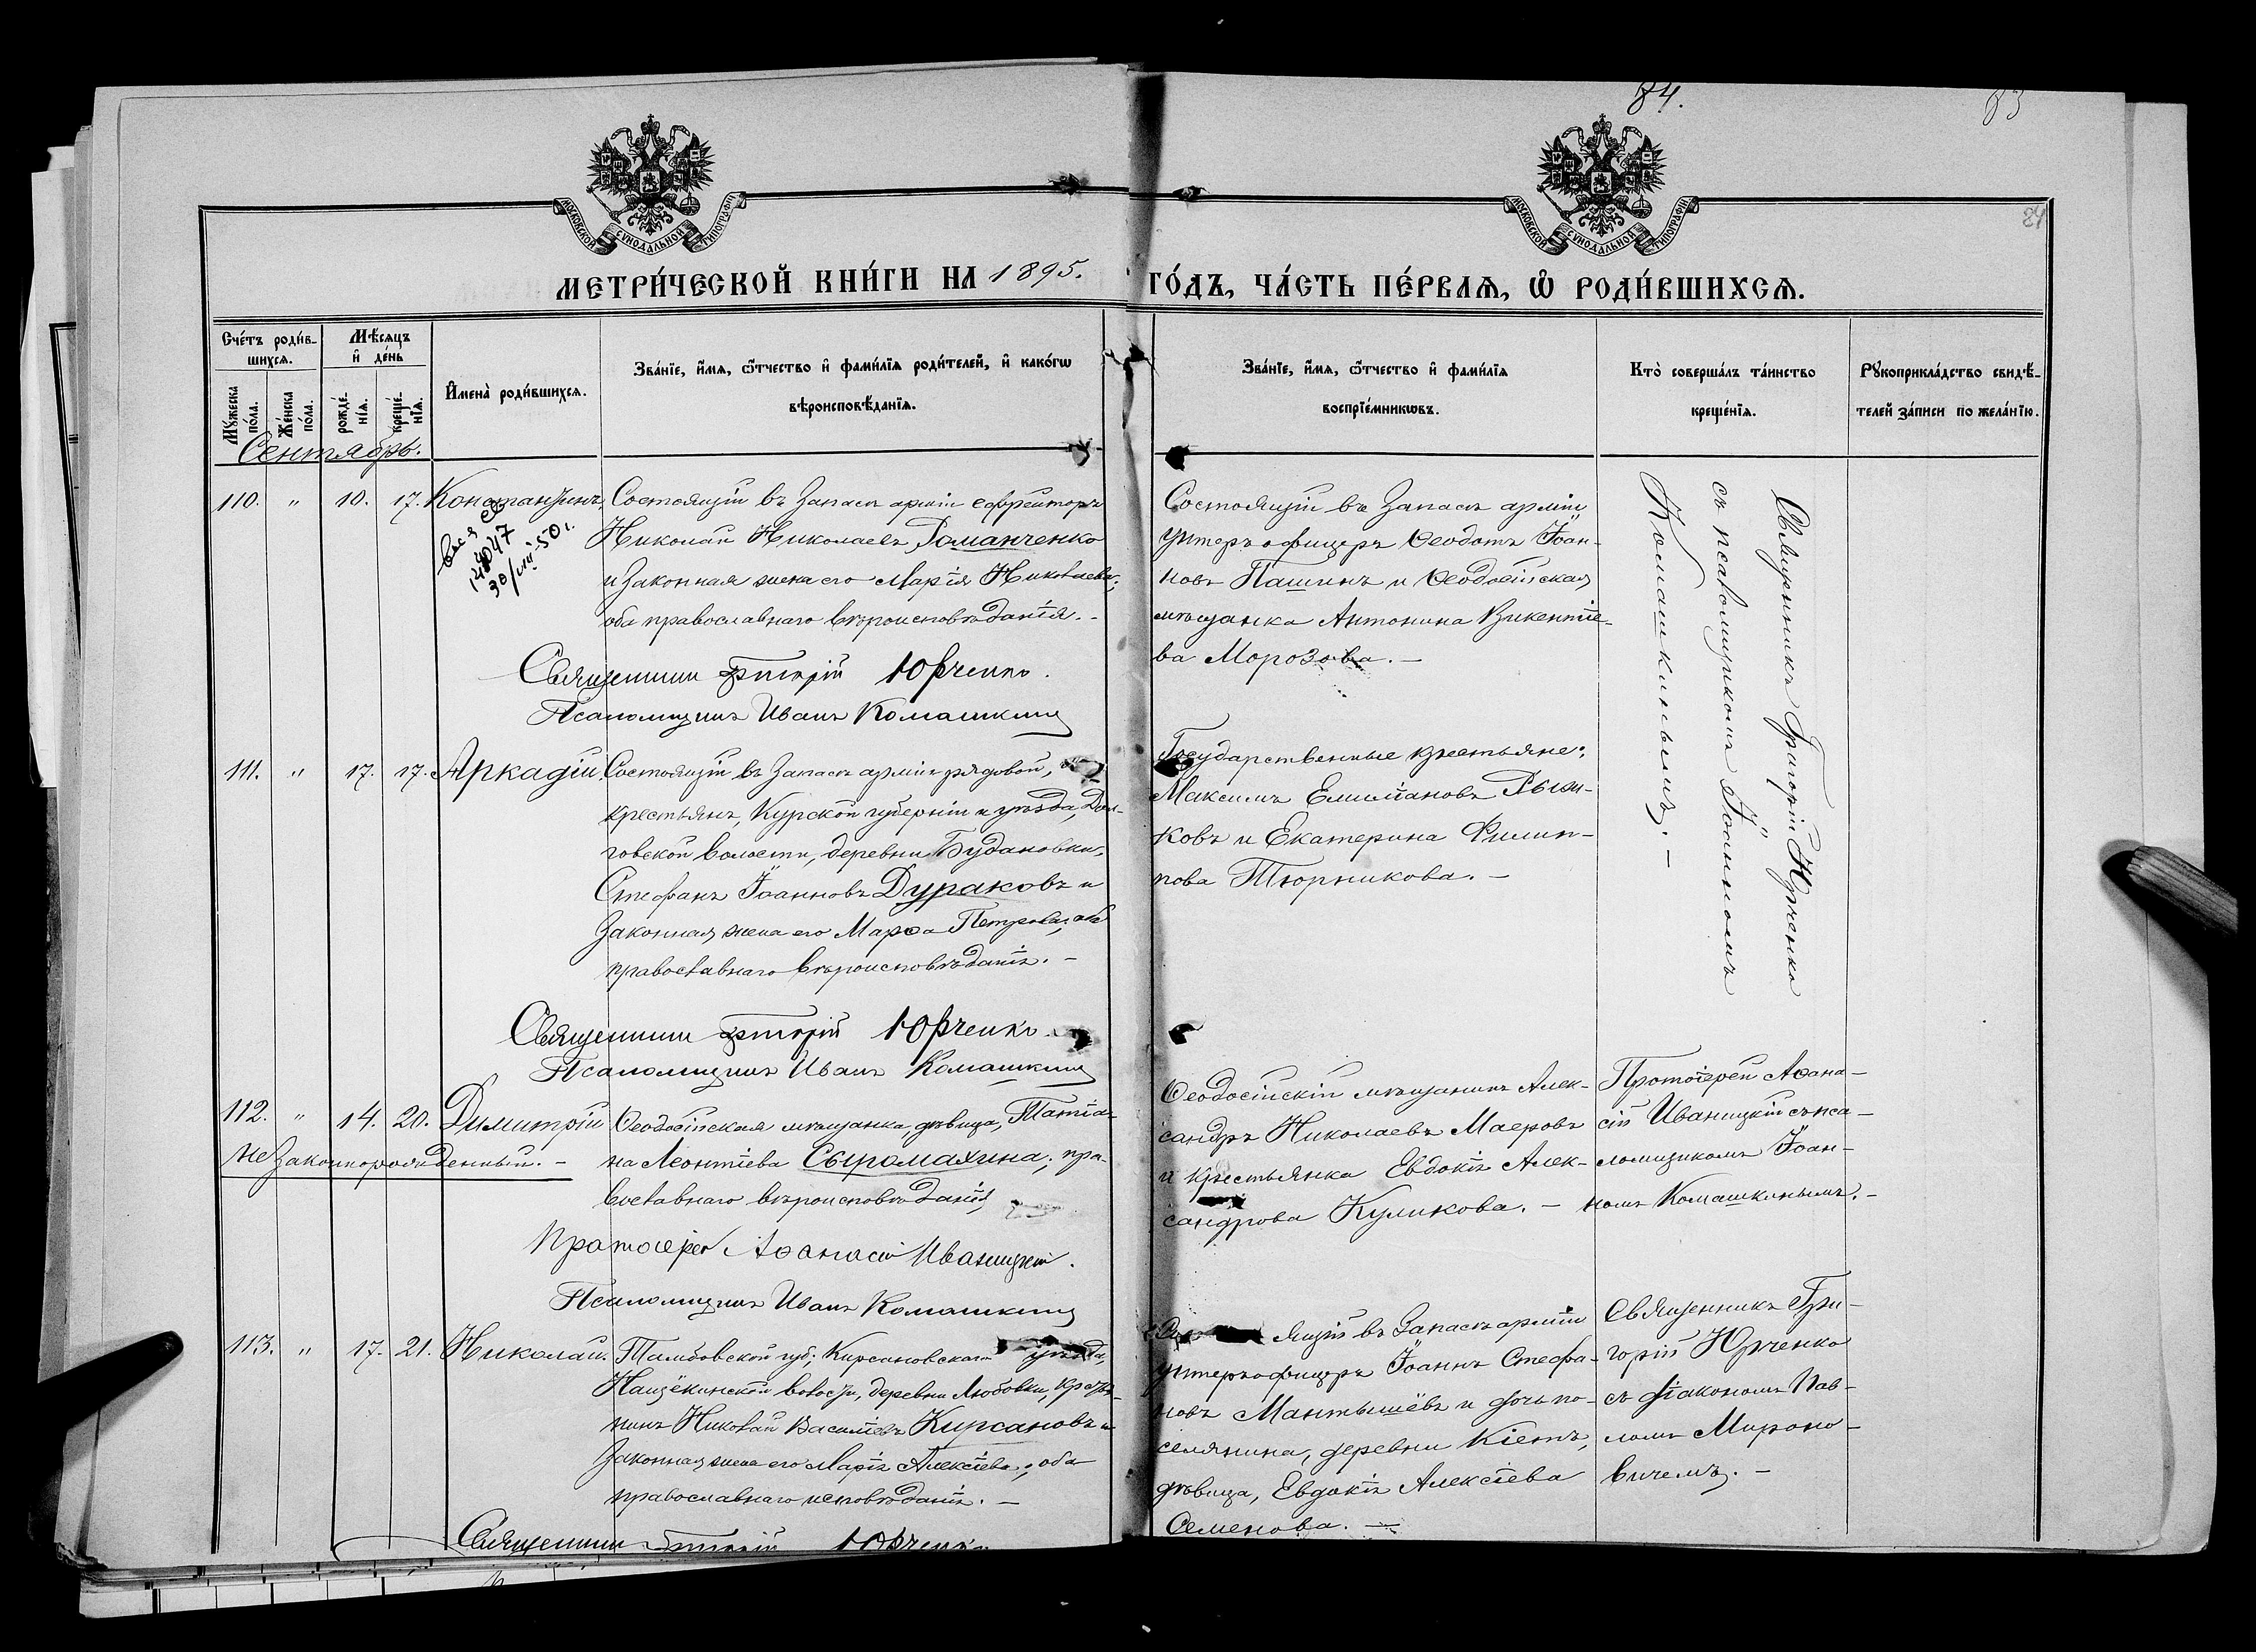 84.
83
84
МОСКОВСКОЙ СѴНОДАЛЬНОЙ ТИПОГРАФІИ
МОСКОВСКОЙ СѴНОДАЛЬНОЙ ТИПОГРАФІИ
МЕТРИ́ЧЕСКОЙ КНИ́ГИ НА 1895. ГО́ДЪ, ЧА́СТЬ ПЕ́РВАѦ, Ѡ҆ РОДИ́ВШИХСѦ.
Сче́тъ роди́в-
шихсѧ.
Мѣсѧцъ
и҆ де́нь
Мꙋ́жеска по́ла.
Же́нска по́ла.
рожде́-нїѧ.
креще́-нїѧ.
И҆мена̀ роди́вшихсѧ.
Зва́нїе, и҆́мѧ, ѻ҆́тчество и҆ фами́лїѧ роди́телей, и҆ како́гѡ
вѣроисповѣ́данїѧ.
Зва́нїе, и҆́мѧ, ѻ҆́тчество и҆ фами́лїѧ
воспрїе́мникѡвъ.
Кто̀ соверша́лъ та́инство
креще́нїѧ.
Рꙋкоприкла́дство свидѣ́-
телей за́писи по жела́нїю.
Сентябрь.
110. " 10. 17. Константинъ.
30/VIII-50 г.
Состоящій въ Запасѣ арміи ефрейторъ
Николай Николаевъ Романченко
и Законная жена его Марія Николаева;
оба православнаго вѣроисповѣданія. -
Священникъ Григорій Юрченко.
Псаломщикъ Иванъ Комашкинъ
Состоящій въ Запасѣ арміи
унтеръ офицеръ Ѳеодотъ Іоан-
новъ Пашинъ и Ѳеодосійская
мѣщанка Антонина Викентіе-
ва Морозова. -
Священникъ Григорій Юрченко
съ псаломщикомъ Іоанномъ
Комашкинымъ. -
111. " 17. 17. Аркадій.
Состоящій въ Запасѣ арміи рядовой, изъ
крестьянъ, Курской губерніи и уѣзда, Дол-
говской волости, деревни Будановки,
Стефанъ Іоанновъ Дураковъ и
Законная жена его Марѳа Петрова; оба
православнаго вѣроисповѣданія. -
Священникъ Григорій Юрченко.
Псаломщикъ Иванъ Комашкинъ
Государственные крестьяне:
Максимъ Емиліановъ Рыжи-
ковъ и Екатерина Филип-
пова Тюрникова. -
112. " 14. 20. Димитрій
Незаконнорожденный. -
Ѳеодосійская мѣщанка, дѣвица, Татіа-
на Леонтіева Сыромахина; пра-
вославнаго вѣроисповѣданія
Протоіерей Аѳанасій Иваницкій.
Псаломщикъ Иванъ Комашкинъ
Ѳеодосійскій мѣщанинъ Алек-
сандръ Николаевъ Маеровъ
и крестьянка Евдокія Алек-
сандрова Куликова. -
Протоіерей Аѳана-
сій Иваницкій съ пса-
ломщикомъ Іоан-
номъ Комашкинымъ. -
113. " 17. 21. Николай.
Тамбовской губ., Кирсановскаго уѣзда,
Нащёкинской волости, деревни Любовки, крестья-
нинъ Николай Василіевъ Кирсановъ и
Законная жена его Марія Алексіева; оба
православнаго исповѣданія. -
Священникъ Григорій Юрченко
Состоящій въ Запасѣ арміи
унтеръ офицеръ Іоаннъ Стефа-
новъ Мантышёвъ и дочь по-
селянина, деревни Кіетъ,
дѣвица, Евдокія Алексіева
Семенова. -
Священникъ Гри-
горій Юрченко
съ діакономъ Пав-
ломъ Мироно-
вичемъ. -